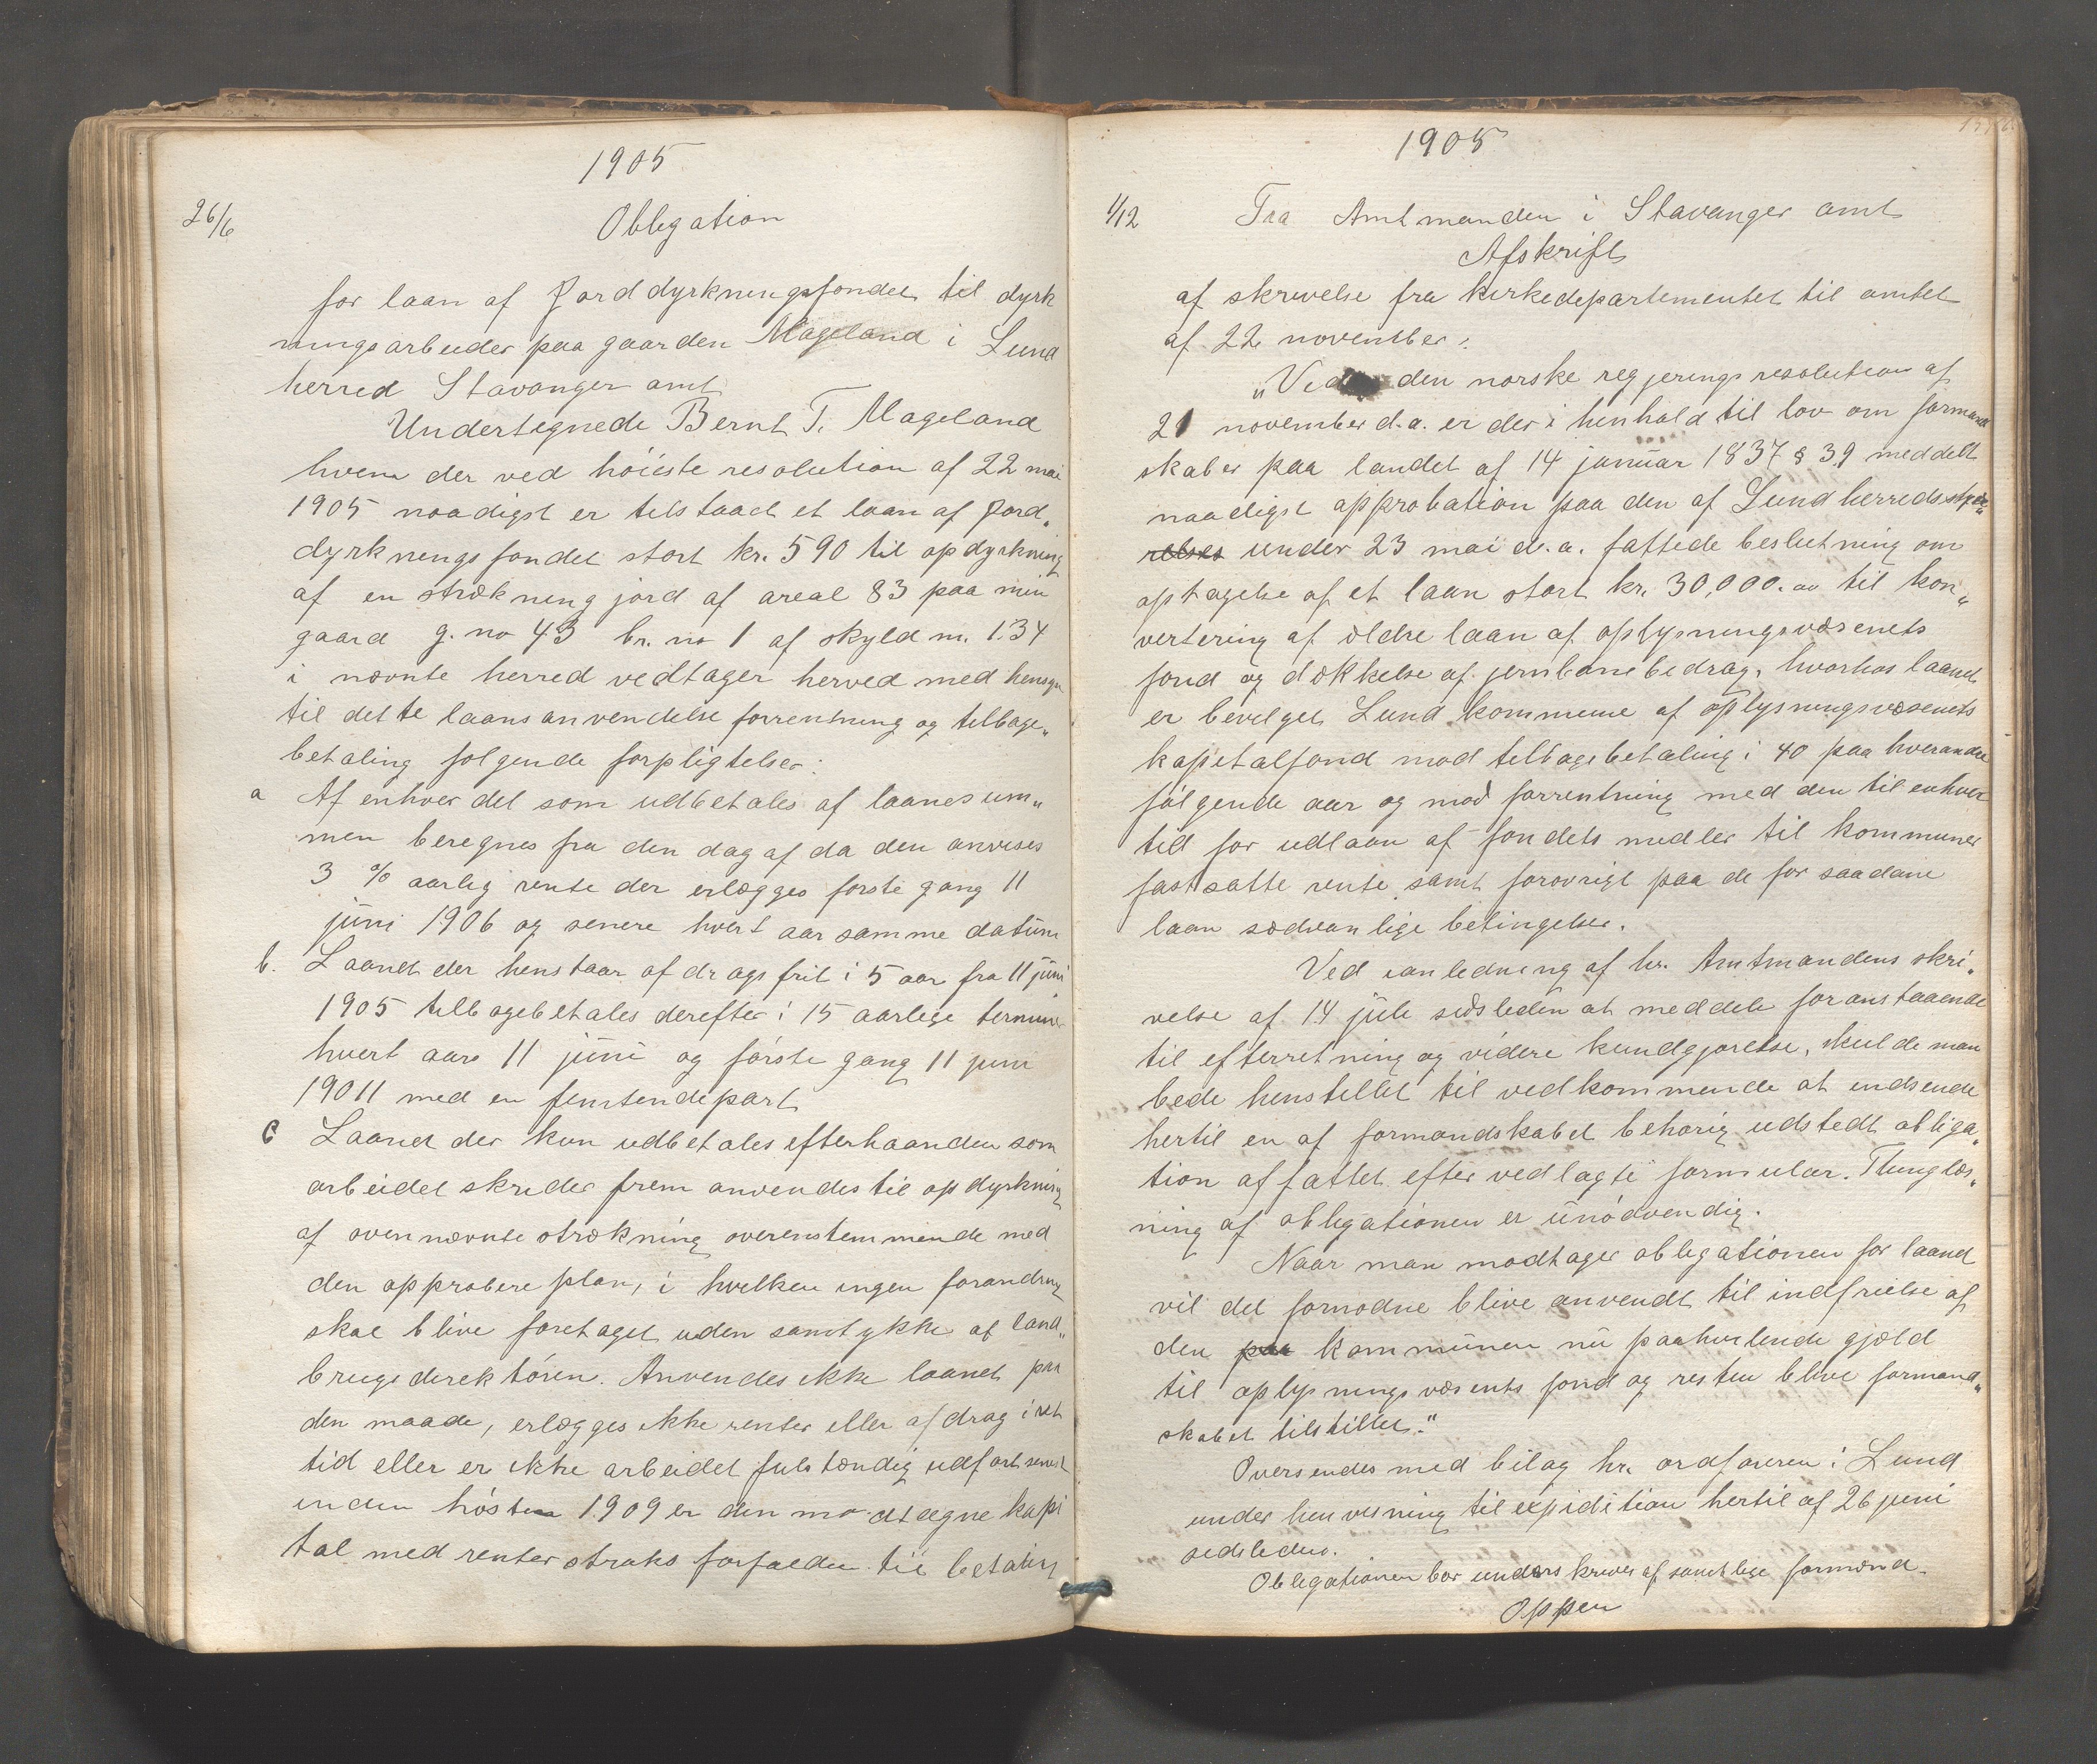 1905
26/6
Obligation
for laan af Jorddyrkningsfondet til dyrk
ningsarbeider paa gaarden Mageland i Lund
herred Stavanger amt
Undertegnede Bernt T. Mageland
hvem der ved höieste resolution af 22 mai
1905 naadigst er tilstaaet et laan af Jord„
dyrkningsfondet stort kr. 590 til opdyrkning
af en strækning jord af areal 83 paa min
gaard g. no 43 br. no 1 af skyld m. 1.34
i nævnte herred vedtager herved med hensyn
til dette laans anvendelse forrentning og tilbage„
betaling folgende forpligtelser:
a Af enhver del som udbetales af laanesum„
men beregnes fra den dag af da den anvises
3 % aarlig rente der erlægges forste gang 11
juni 1906 og senere hvert aar samme datum
b. Laanet der henstaar afdragsfrit i 5 aar fra 11 juni
1905 tilbagebetales derefter i 15 aarlige terminer
hvert aars 11 juni og förste gang 11 juni
19011 med en femtendepart
c Laanet der kun udbetales efterhaanden som
arbeidet skrider frem anvendes til opdyrkning
af ovennævnte strækning overenstemmende med
den approbere plan, i hvilken ingen forandring
skal blive foretaget uden samtykke af land„
brugsdirektören. Anvendes ikke laanet paa
den maade, erlægges ikke renter eller afdrag i ret
tid eller er ikke arbeidet fulstændig udfort senest
inden hösten 1909 er den modtagne kapi
tal med renter straks forfalden til betaling
1905
1/12
Fra Amtmanden i Stavanger amt
Afskrift
af skrivelse fra kirkedepartementet til amtet
af 22 november:
„Ved den norske regjerings resolution af
21 november d.a. er der i henhold til lov om formand
skaber paa landet af 14 januar 1837 § 39 meddelt
naadigst approbation paa den af Lund herredssty
relses under 23 mai d.a. fattede beslutning om
optagelse af et laan stort kr. 30,000.oo til kon„
vertering af ældre laan af oplysningsvæsenets
fond og dækkelse af jernbanebidrag, hvorhos laanet
er bevilget Lund kommune af oplysningsvæsenets
kapitalfond mod tilbagebetaling i 40 paa hverandre
fölgende aar og mod forrentning med den til enhver
tid for udlaan af fondets midler til kommuner
fastsatte rente samt forovrigt paa de for saadane
laan sædvanlige betingelser.
Ved anledning af hr. Amtmandens skri„
velse af 14 juli sidsleden at meddele foranstaaende
til efterretning og videre kundgjorelse, skulde man
bede henstillet til vedkommende at indsende
hertil en af formandskabet behorig udstedt obliga„
tion affattet efter vedlagte formular. Thinglæs„
ning af obligationen er unödvendig.
Naar man modtager obligationen for laanet
vil det formodne blive anvendt til indfrielse af
den paa kommunen nu paahvilende gjæld
til oplysningsvæsents fond og resten blive formand„
skabet tilstillet."
Oversendes med bilag hr. ordforeren i Lund
under henvisning til expidition hertil af 26 juni
sidsleden.
Obligationen bor underskrives af samtlige formænd.
Oppen